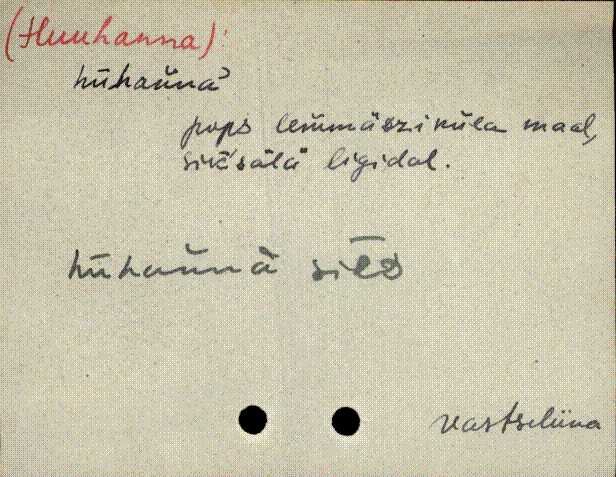 (Huuhanna):
hühaňna
pops lem̆mäszi küla maal,
siksälä ligidal.
hühaňnà sīld
Vastseliina